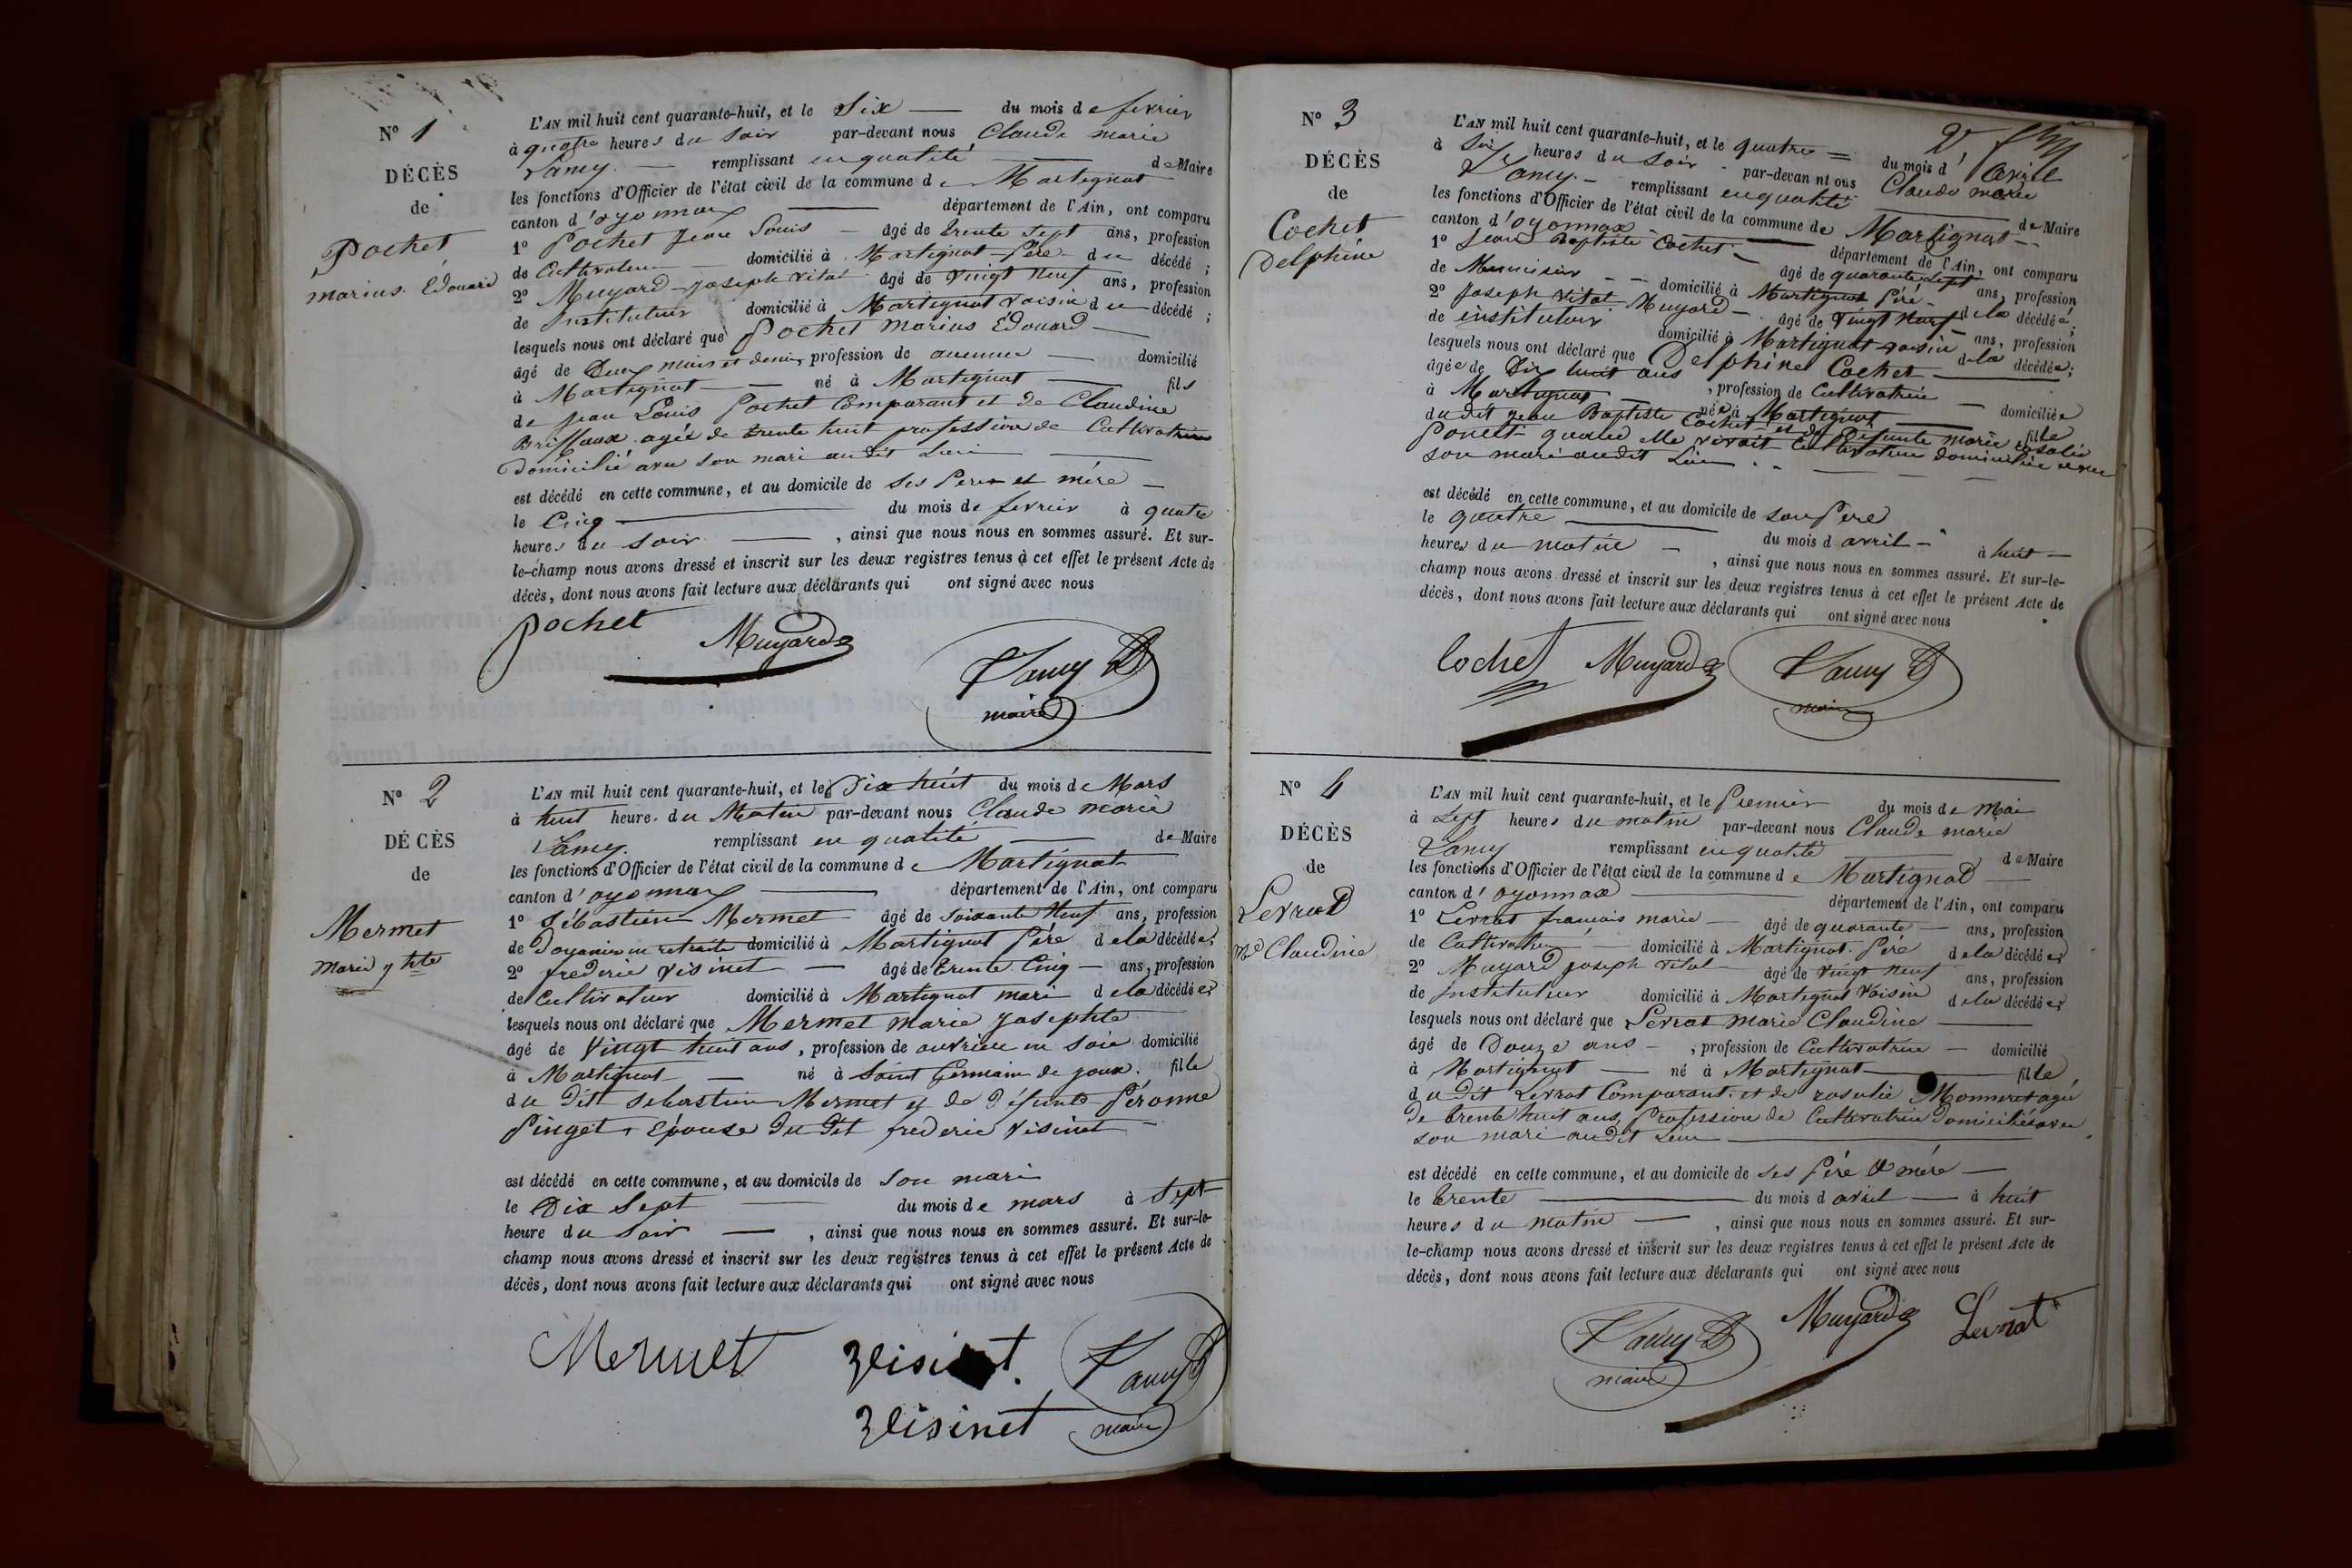 N° 1
DÉCÈS
de
Pochet
marius Edouard
L'AN mil huit cent quarante-huit, et le Six du mois de fevrier
à quatre heures du Soir par-devant nous Claude marie
Lamy remplissant en qualité de Maire
les fonctions d'Officier de l'état civil de la commune de Martignat
canton d'oyonnax département de l'Ain, ont comparu
1° Pochet Jean Louis âgé de trente Sept ans, profession
de Cultivateur domicilié à Martignat Père du décédé ;
2° Muyard joseph vital âgé de vingt Neuf ans, profession
de Instituteur domicilié à Martignat voisin du décédé ;
lesquels nous ont déclaré que Pochet Marius Edouard
âgé de Deux mois et demi, profession de aucune domicilié
à Martignat né à Martignat fils
de Jean Louis Pochet Comparant et de Claudine
Briffaux agée de trente huit profession de Cultivatrice
Domicilié avec son mari audit Lieu
est décédé en cette commune, et au domicile de ses Peres et mère
le Cinq du mois de fevrier à quatre
heures du soir , ainsi que nous nous en sommes assuré. Et sur-
le-champ nous avons dressé et inscrit sur les deux registres tenus à cet effet le présent Acte de
décès, dont nous avons fait lecture aux déclarants qui ont signé avec nous
pochet Muyard Lamy
maire
N° 2
DÉCÈS
de
Mermet
Marie jhte
L'AN mil huit cent quarante-huit, et le Dix huit du mois de Mars
à huit heure du Matin par-devant nous Claude marie
Lamy. remplissant en qualité de Maire
les fonctions d'Officier de l'état civil de la commune de Martignat
canton d'oyonnax département de l'Ain, ont comparu
1° Sébastien Mermet âgé de soixante Neuf ans, profession
de Douanier en retraite domicilié à Martignat Père de la décédée ;
2° frederic Visinet âgé de trente Cinq ans, profession
de Cultivateur domicilié à Martignat mari de la décédée ;
lesquels nous ont déclaré que Mermet marie josephte
âgé de Vingt huit ans, profession de ouvriere en soie domicilié
à Martignat né à Saint Germain de joux. fille
du Dit sebastien Mermet et de Défunte Péronne
Pinget, Epouse du Dit frederic Visinet
est décédé en cette commune, et au domicile de son mari
le Dix Sept du mois de mars à Sept
heure du Soir , ainsi que nous nous en sommes assuré. Et sur-le-
champ nous avons dressé et inscrit sur les deux registres tenus à cet effet le présent Acte de
décès, dont nous avons fait lecture aux déclarants qui ont signé avec nous
Mermet Visinet Lamy
Visinet maire
N° 3
DÉCÈS
de
Cochet
Delphine
L'AN mil huit cent quarante-huit, et le quatre du mois d'avril
à Six heures du soir par-devan nt ous Claude marie
Lamy remplissant en qualité de Maire
les fonctions d'Officier de l'état civil de la commune de Martignat
canton d'oyonnax département de l'Ain, ont comparu
1° Jean Baptiste Cochet âgé de quarante Sept ans, profession
de Menuisier domicilié à Martignat Père de la décédée ;
2° Joseph Vital Muyard âgé de Vingt Neuf ans, profession
de instituteur domicilié à Martignat voisin de la décédée ;
lesquels nous ont déclaré que Delphine Cochet
âgée de Dix huit ans , profession de Cultivatrice domiciliée
à Martignat née à Martignat fille
dudit Jean Baptiste Cochet et de Défunte marie rosalie
Poncet quand elle vivait Cultivatrice domiciliée avec
son mari audit Lieu
est décédé en cette commune, et au domicile de son Pere
le quatre du mois d avril à huit
heures du matin , ainsi que nous nous en sommes assuré. Et sur-le-
champ nous avons dressé et inscrit sur les deux registres tenus à cet effet le présent Acte de
décès, dont nous avons fait lecture aux déclarants qui ont signé avec nous
Cochet Muyard Lamy
maire
N° 4
DÉCÈS
de
Levrat
Mie Claudine
L'AN mil huit cent quarante-huit, et le Premier du mois de Mai
à Sept heures du matin par-devant nous Claude marie
Lamy remplissant en qualité de Maire
les fonctions d'Officier de l'état civil de la commune de Martignat
canton d'oyonnax département de l'Ain, ont comparu
1° Levrat francois marie âgé de quarante ans, profession
de Cultivateur domicilié à Martignat Père de la décédée ;
2° Muyard joseph vital âgé de Vingt Neuf ans, profession
de Instituteur domicilié à Martignat Voisin de la décédée ;
lesquels nous ont déclaré que Levrat Marie Claudine
âgé de Douze ans , profession de Cultivatrice domicilié
à Martignat né à Martignat fille
dudit Levrat Comparant et de rosalie Monneret agée
De trente huit ans, Profession de Cultivatrice Domiciliée avec
son mari audit Lieu
est décédé en cette commune, et au domicile de ses Père & mére
le trente du mois d avril à huit
heures du matin , ainsi que nous nous en sommes assuré. Et sur-
le-champ nous avons dressé et inscrit sur les deux registres tenus à cet effet le présent Acte de
décès, dont nous avons fait lecture aux déclarants qui ont signé avec nous
Lamy Muyard Levrat
maire